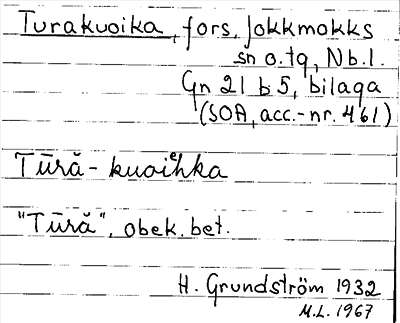 Turakuoika, fors, Jokkmokks
sn o. tg, Nb. l.
Gn 21 b 5, bilaga
(SOA, acc.-nr. 461)
Tūră-kuoiehka
"Tūră", obek. bet.
H. Grundström 1932
M.L. 1967